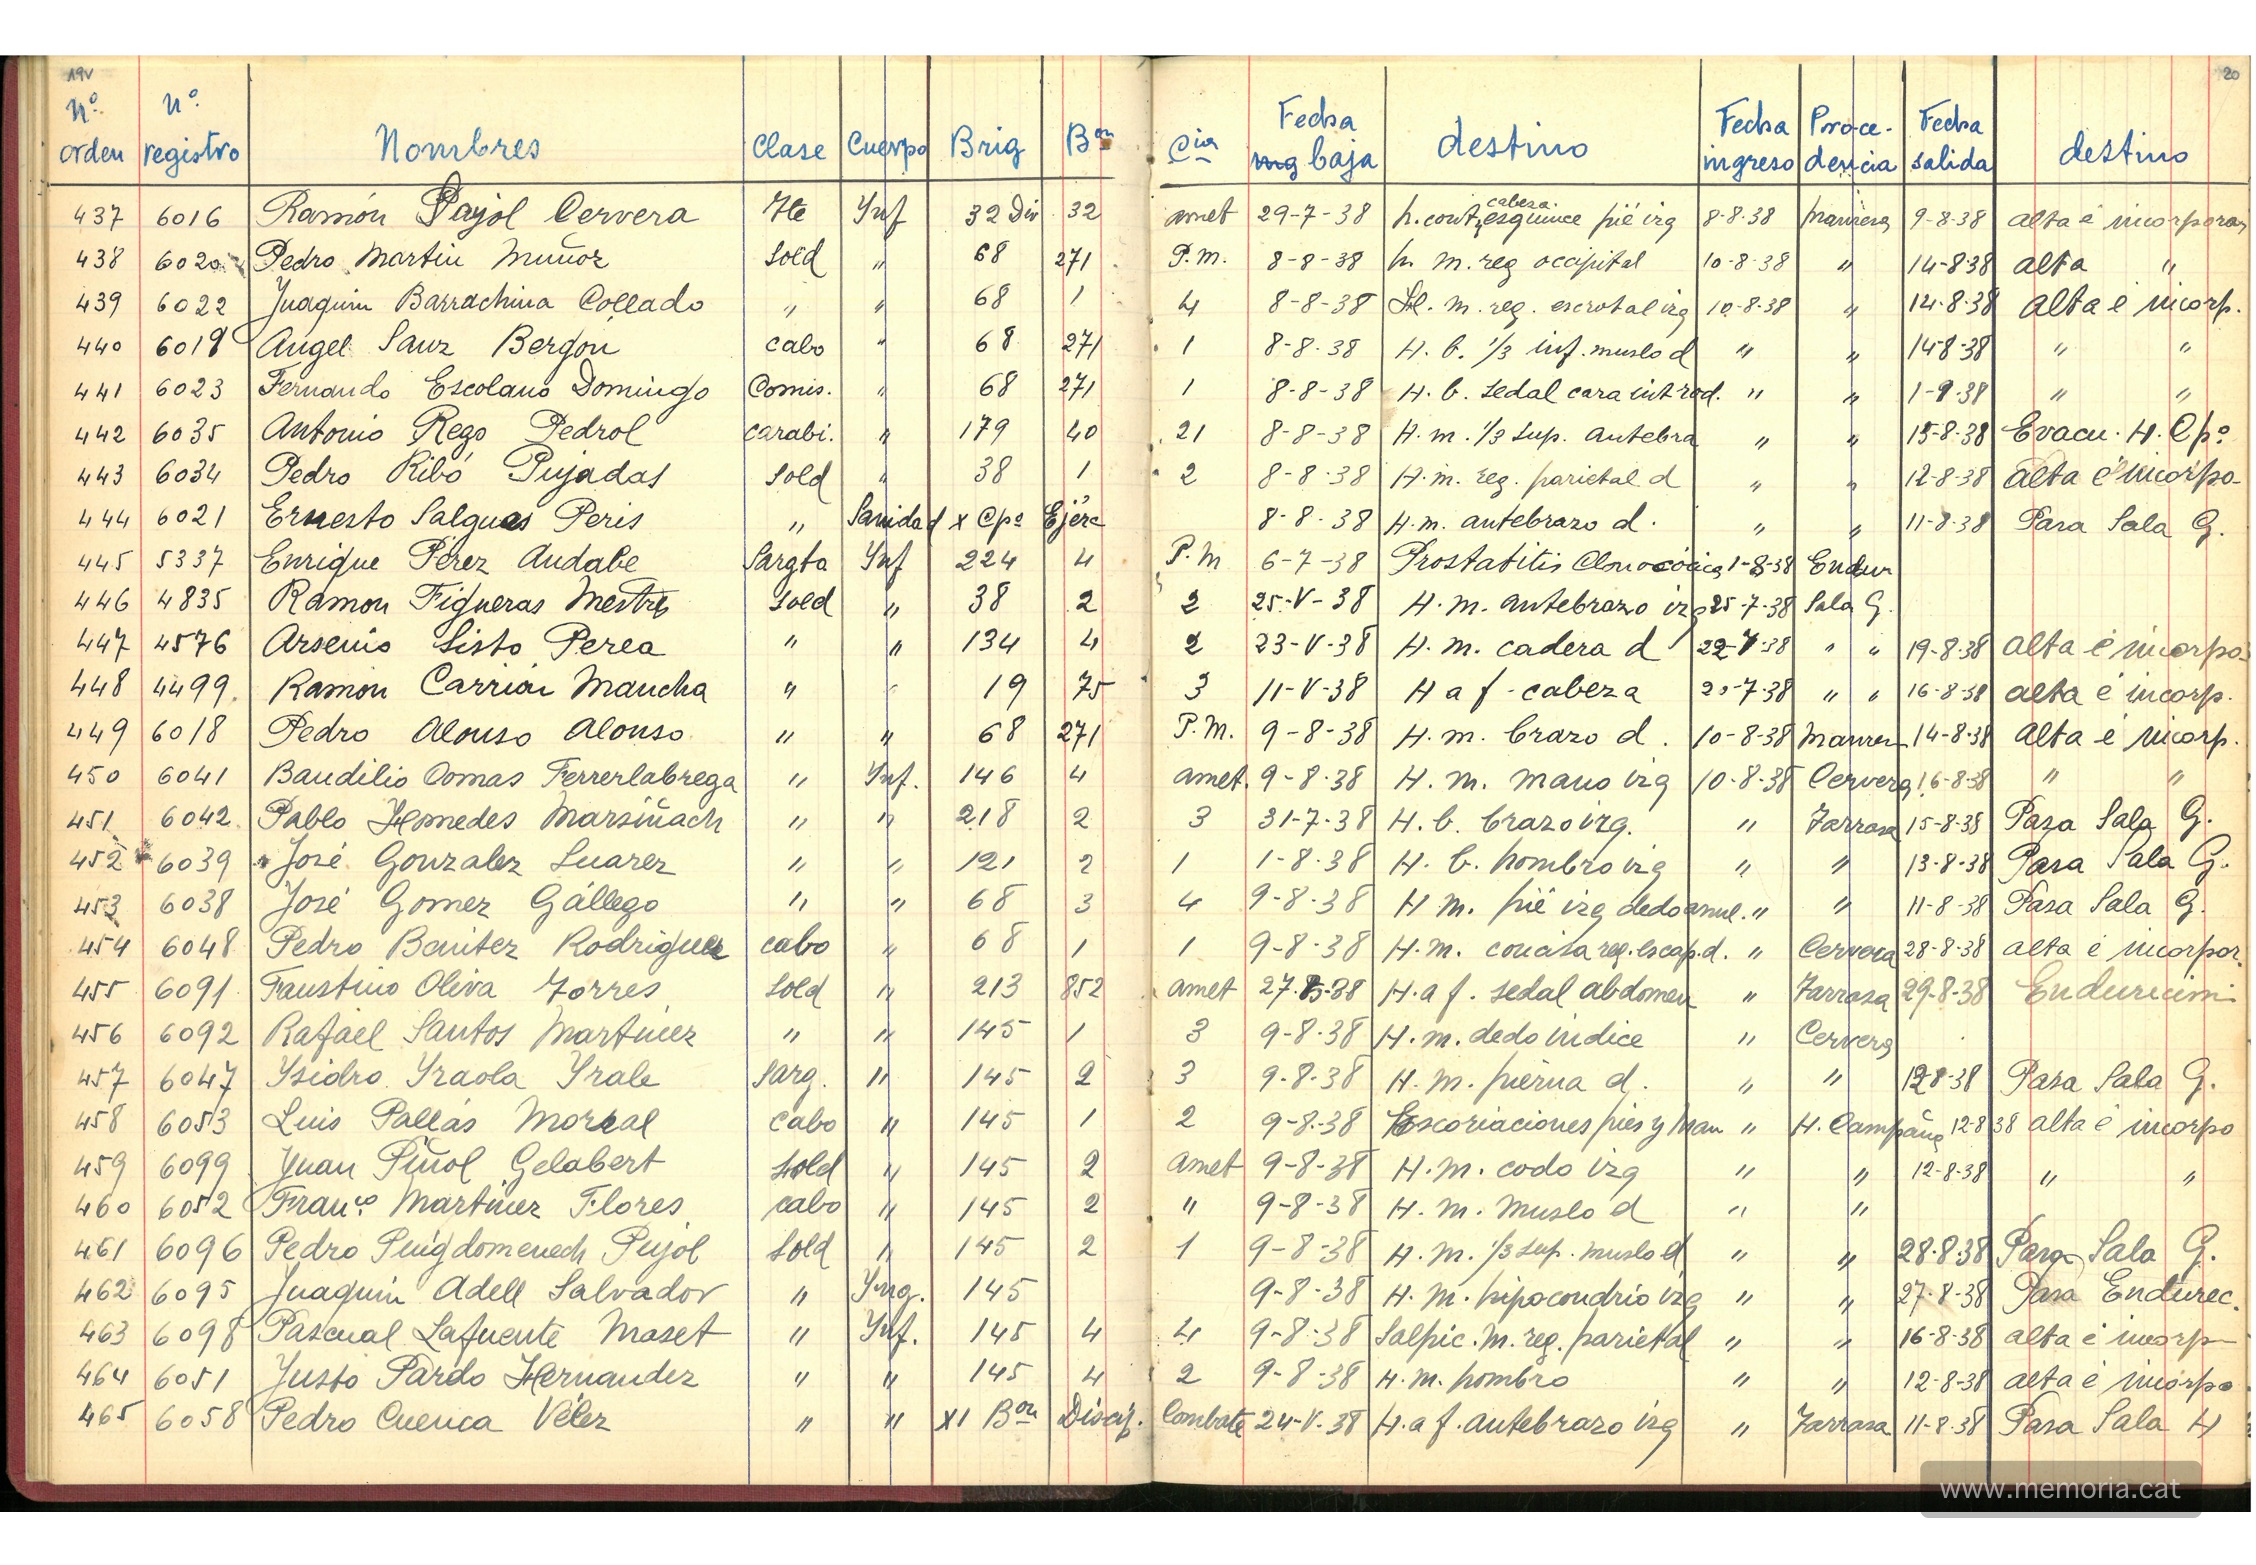 19v
20
Nº orden Nº registro Nombres Clase Cuerpo Brig Bon Cia Fecha baja destino Fecha ingreso Proce-dencia Fecha salida destino
437 6016 Ramón Pajol Cervera Tte Ynf 32 Div 32 amet 29-7-38 h. cont, cabeza esguince pié izq 8-8-38 Manresa 9-8-38 alta é incorporan
438 6020 Pedro Martin Muñoz Sold " 68 271 P.M. 8-8-38 h. m. reg occipital 10-8-38 " 14-8-38 alta "
439 6022 Juaquin Barrachina Collado " " 68 1 4 8-8-38 H. m. reg. escrotal izq 10-8-38 " 14-8-38 alta é incorp.
440 6019 Angel Sanz Bergón cabo " 68 271 1 8-8-38 H. b. 1/3 inf. muslo d " " 14-8-38 " "
441 6023 Fernando Escolano Domingo Comis. " 68 271 1 8-8-38 H. b. sedal cara int rod. " " 1-9-38 " "
442 6035 Antonio Rego Pedrol carabi. " 179 40 21 8-8-38 H. m. 1/3 sup. antebra " " 15-8-38 Evacu. H. Cpº
443 6034 Pedro Ribó Pujadas Sold " 38 1 2 8-8-38 H. m. reg. parietal d " " 12-8-38 alta é incorpo-
444 6021 Ernesto Salgues Peris " Sanidad X Cpº Ejérc 8-8-38 H. m. antebrazo d. " " 11-8-38 Pasa Sala G.
445 5337 Enrique Pérez Andabe Sargto Ynf 224 4 P.M 6-7-38 Prostatitis 1-8-38 Endur
446 4835 Ramon Figueras Mestre Sold " 38 2 2 25-V-38 H. m. antebrazo izq 25-7-38 Sala G.
447 4576 Arsenio Sisto Perea " " 134 4 2 23-V-38 H. m. cadera d 22-7-38 " " 19-8-38 alta é incorpo-
448 4499 Ramon Carrión Mancha " " 19 75 3 11-V-38 H a f - cabeza 7-38 " " 16-8-38 alta é incorp.
449 6018 Pedro Alonso Alonso " " 68 271 P.M. 9-8-38 H. m. brazo d. 10-8-38 Manres 14-8-38 alta é incorp.
450 6041 Baudilio Comas Ferrerlabrega " Ynf. 146 4 amet. 9-8-38 H. m. mano izq 10-8-38 Cervera 16-8-38 " "
451 6042 Pablo Homedes Marsiñach " " 218 2 3 31-7-38 H. b. brazo izq. " Tarrasa 15-8-38 Pasa Sala G.
452 6039 José Gonzalez Suarez " " 121 2 1 1-8-38 H. b. hombro izq " " 13-8-38 Pasa Sala G.
453 6038 José Gomez Gállego " " 68 3 4 9-8-38 H m. pié izq dedo anul. " " 11-8-38 Pasa Sala G.
454 6048 Pedro Benitez Rodriguez cabo " 68 1 1 9-8-38 H. m. concisa reg. escap. d. " Cervera 28-8-38 alta é incorpor.
455 6091 Faustino Oliva Torres Sold " 213 852 amet 27-8-38 H. a f. sedal abdomen " Tarrasa 29-8-38 Endurecimi-
456 6092 Rafael Santos Martinez " " 145 1 3 9-8-38 H. m. dedo indice " Cervera
457 6047 Ysidro Yraola Yrale Sarg. " 145 2 3 9-8-38 H. m. pierna d. " " 12-8-38 Pasa Sala G.
458 6053 Luis Pallás Moreal cabo " 145 1 2 9-8-38 Escoriaciones pies y man " H. Campaña 12-8-38 alta é incorpo
459 6099 Juan Piñol Gelabert Sold " 145 2 amet 9-8-38 H. m. codo izq " " 12-8-38 " "
460 6052 Franco Martinez Flores cabo " 145 2 " 9-8-38 H. m. muslo d " "
461 6096 Pedro Puigdomenech Pujol Sold " 145 2 1 9-8-38 H. m. 1/3 sup. muslo d " " 28-8-38 Pasa Sala G.
462 6095 Juaquin Adell Salvador " Yng. 145 9-8-38 H. m. hipocondrio izq " " 27-8-38 Pasa Endurec.
463 6098 Pascual Lafuente Maset " Ynf. 145 4 4 9-8-38 Salpic. m. reg. parietal " " 16-8-38 alta é incorp
464 6051 Justo Pardo Hernandez " " 145 4 2 9-8-38 H. m. hombro " " 12-8-38 alta é incorpo
465 6058 Pedro Cuenca Vélez " " XI Bon Discip. Combate 24-V-38 H. a f. antebrazo izq " Tarrasa 11-8-38 Pasa Sala H
www.memoria.cat